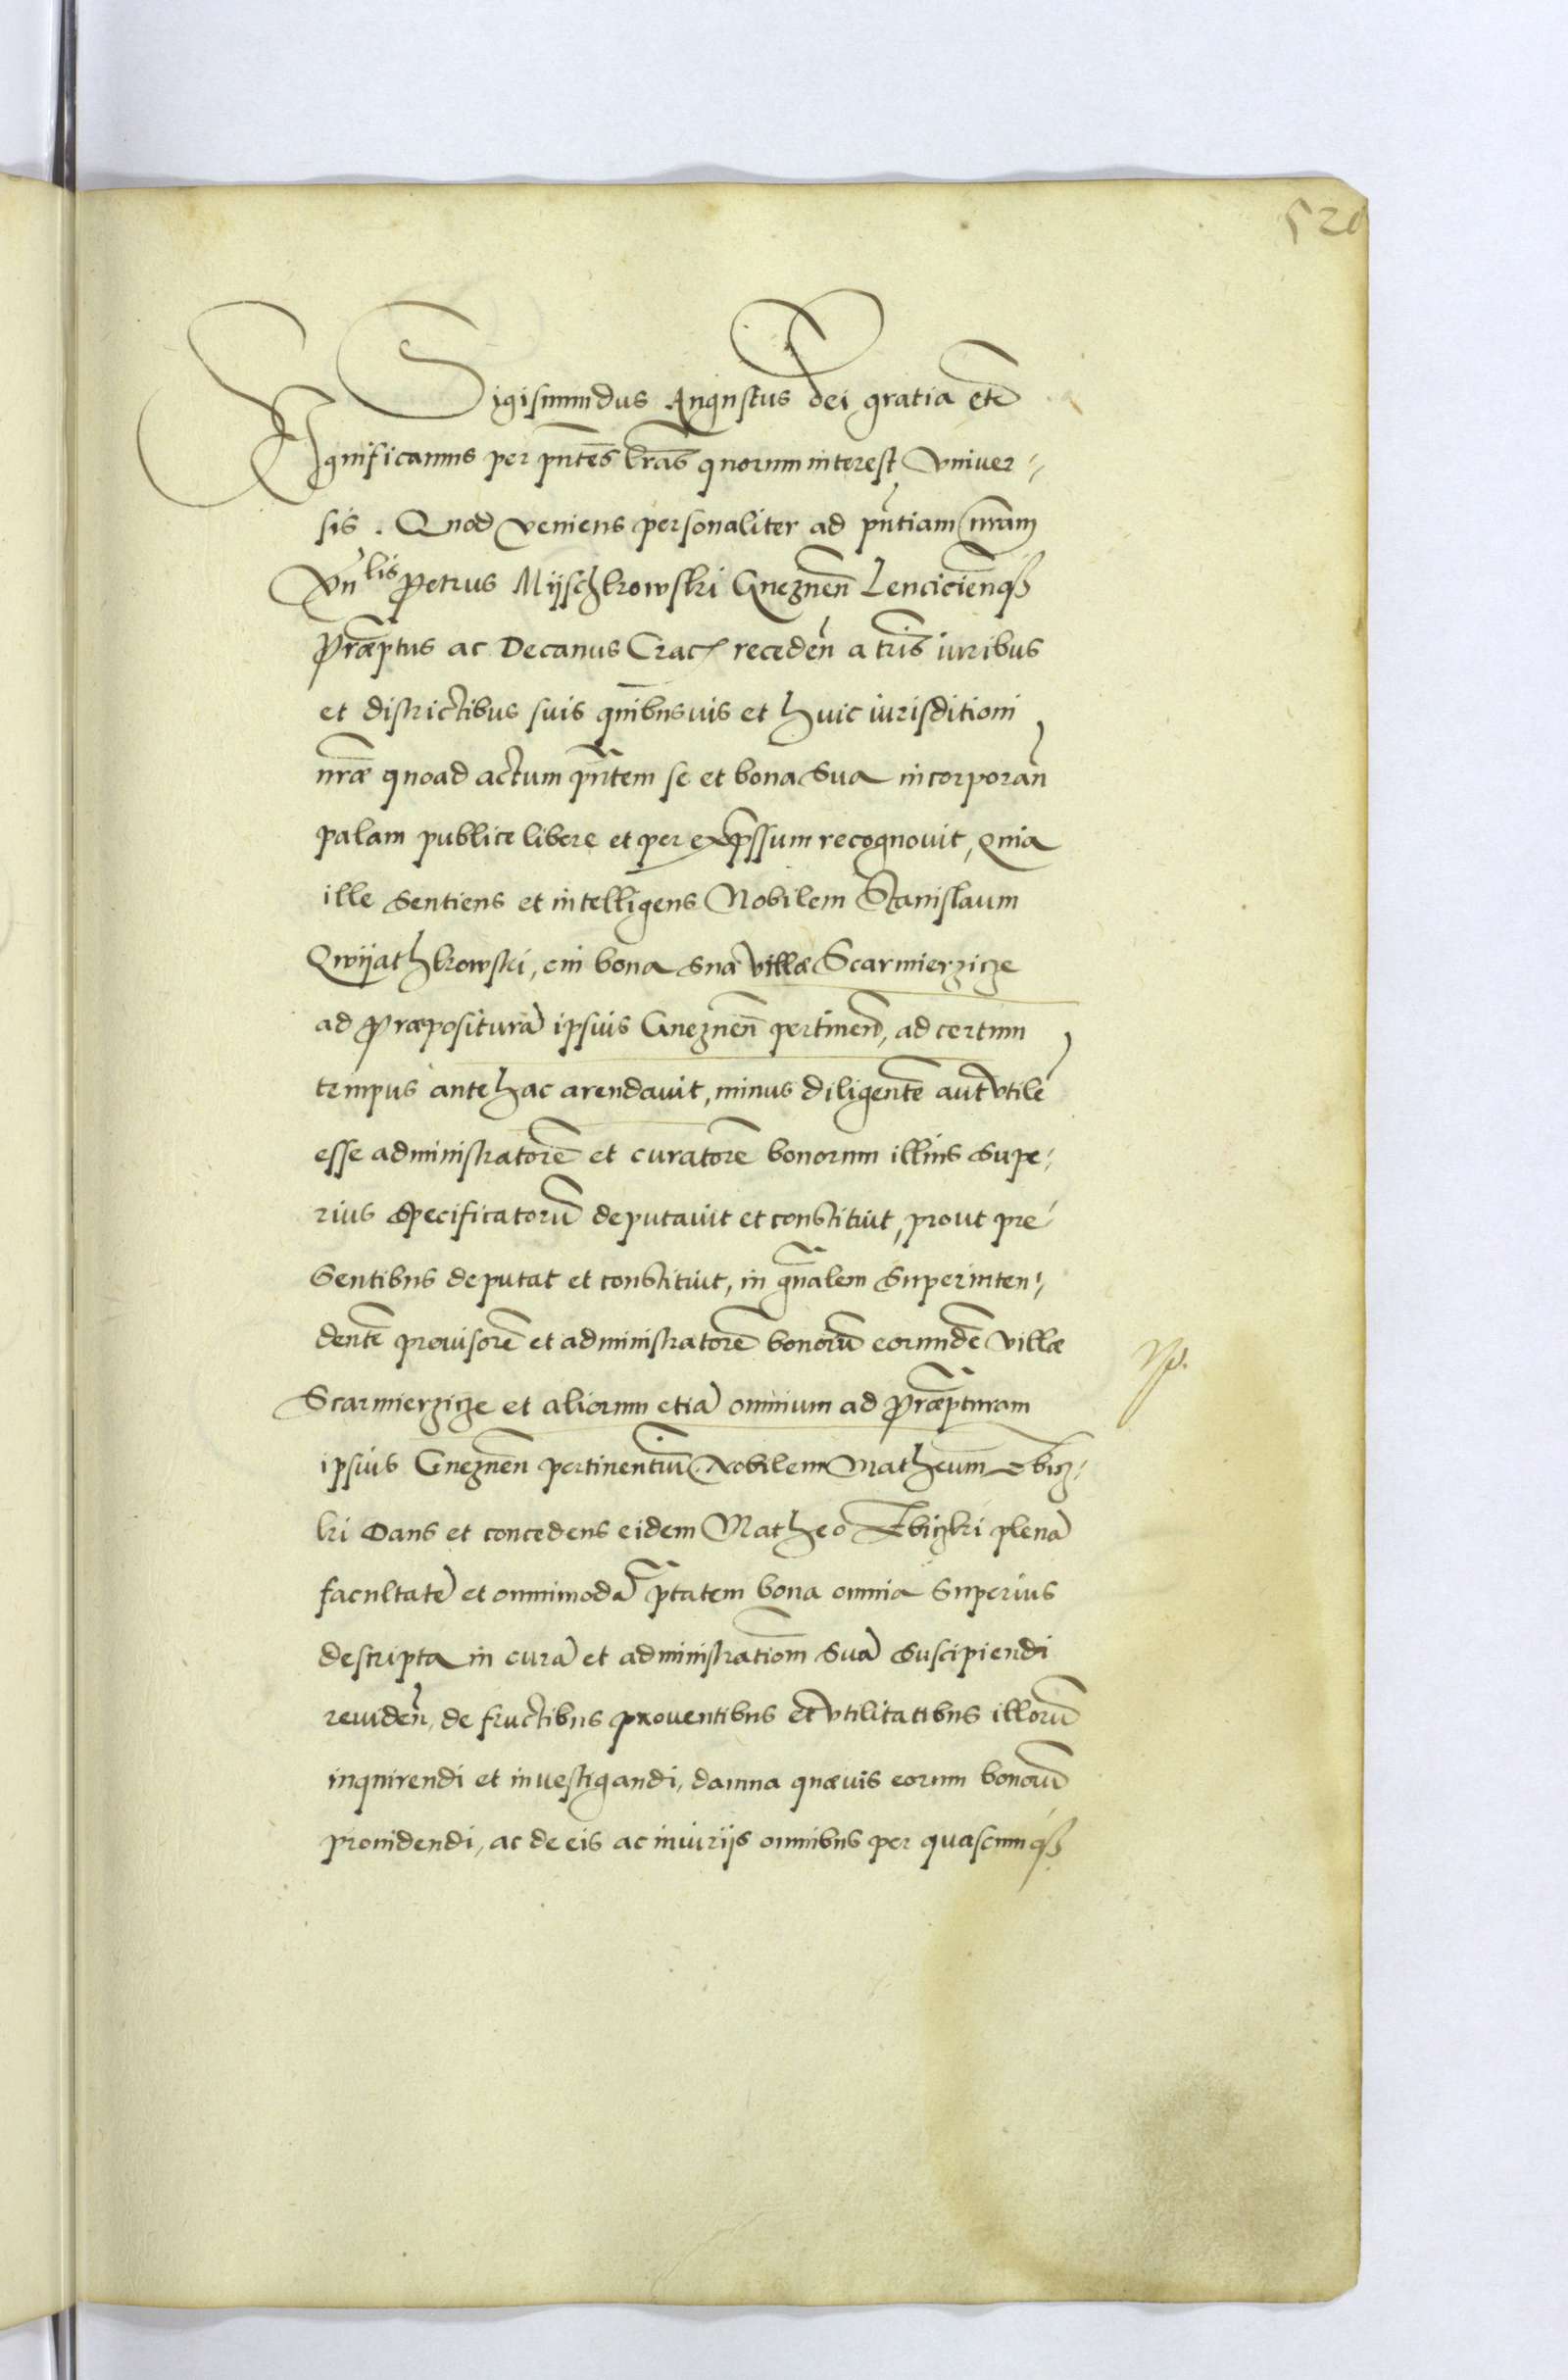 520
Sigismundus Augustus Dei gratia etc̄
Significamus per pn̄tes lr̄as quorum interest vniuer-
sis. Quod veniens personaliter ad pn̄tiam nr̄am
Vn̄lis Petrus Mÿschkowski Gneznen̄ Lencicien̄q3
Præptus ac Decanus Crac receden̄ a tr̄is iuribus
et districtibus suis quibusuis et huic iurisditioni
nr̄æ quoad actum pn̄tem se et bona sua incorporan̄
palam publice libere et per exp̄ssum recognouit, quia
ille sentiens et intelligens Nobilem Stanislaum
Qwÿathkowski, cui bona sua villæ Scarmierzicze
ad Præpositurā ipsius Gneznen̄ pertinen̄, ad certum
tempus antehac arendauit, minus diligentē aut vtilē
esse administratorē et curatorē bonorum illius supe-
rius specificatorū deputauit et constituit, prout præ-
sentibus deputat et constituit, in gn̄alem superinten-
dentē prouisorē et administratorē bonorū eorundē villæ
Scarmierzicze et aliorum etiā omnium ad Præpturam
ipsius Gneznen̄ pertinentiū Nobilem Matheum Zbicz-
ki Dans et concedens eidem Matheo Zbiczki plenā
facultatē et omnimodā ptātem bona omnia superius
descripta in curā et administrationem suā suscipiendi
reuiden̄, de fructibus prouentibus et vtilitatibus illorū
inquirendi et inuestigandi, damna quæuis eorum bonorū
prouidendi, ac de eis ac iniurijs omnibus per quascunq3